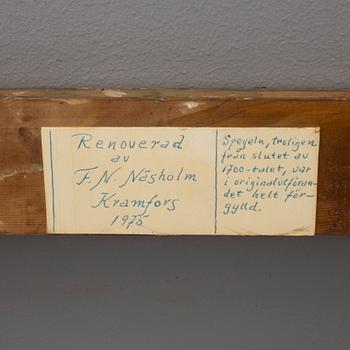 Renoverad
av
F. N. Näsholm
Kramfors
1975
Spegeln, troligen
från slutet av
1700-talet, var
i originalutföran-
det helt för-
gylld.